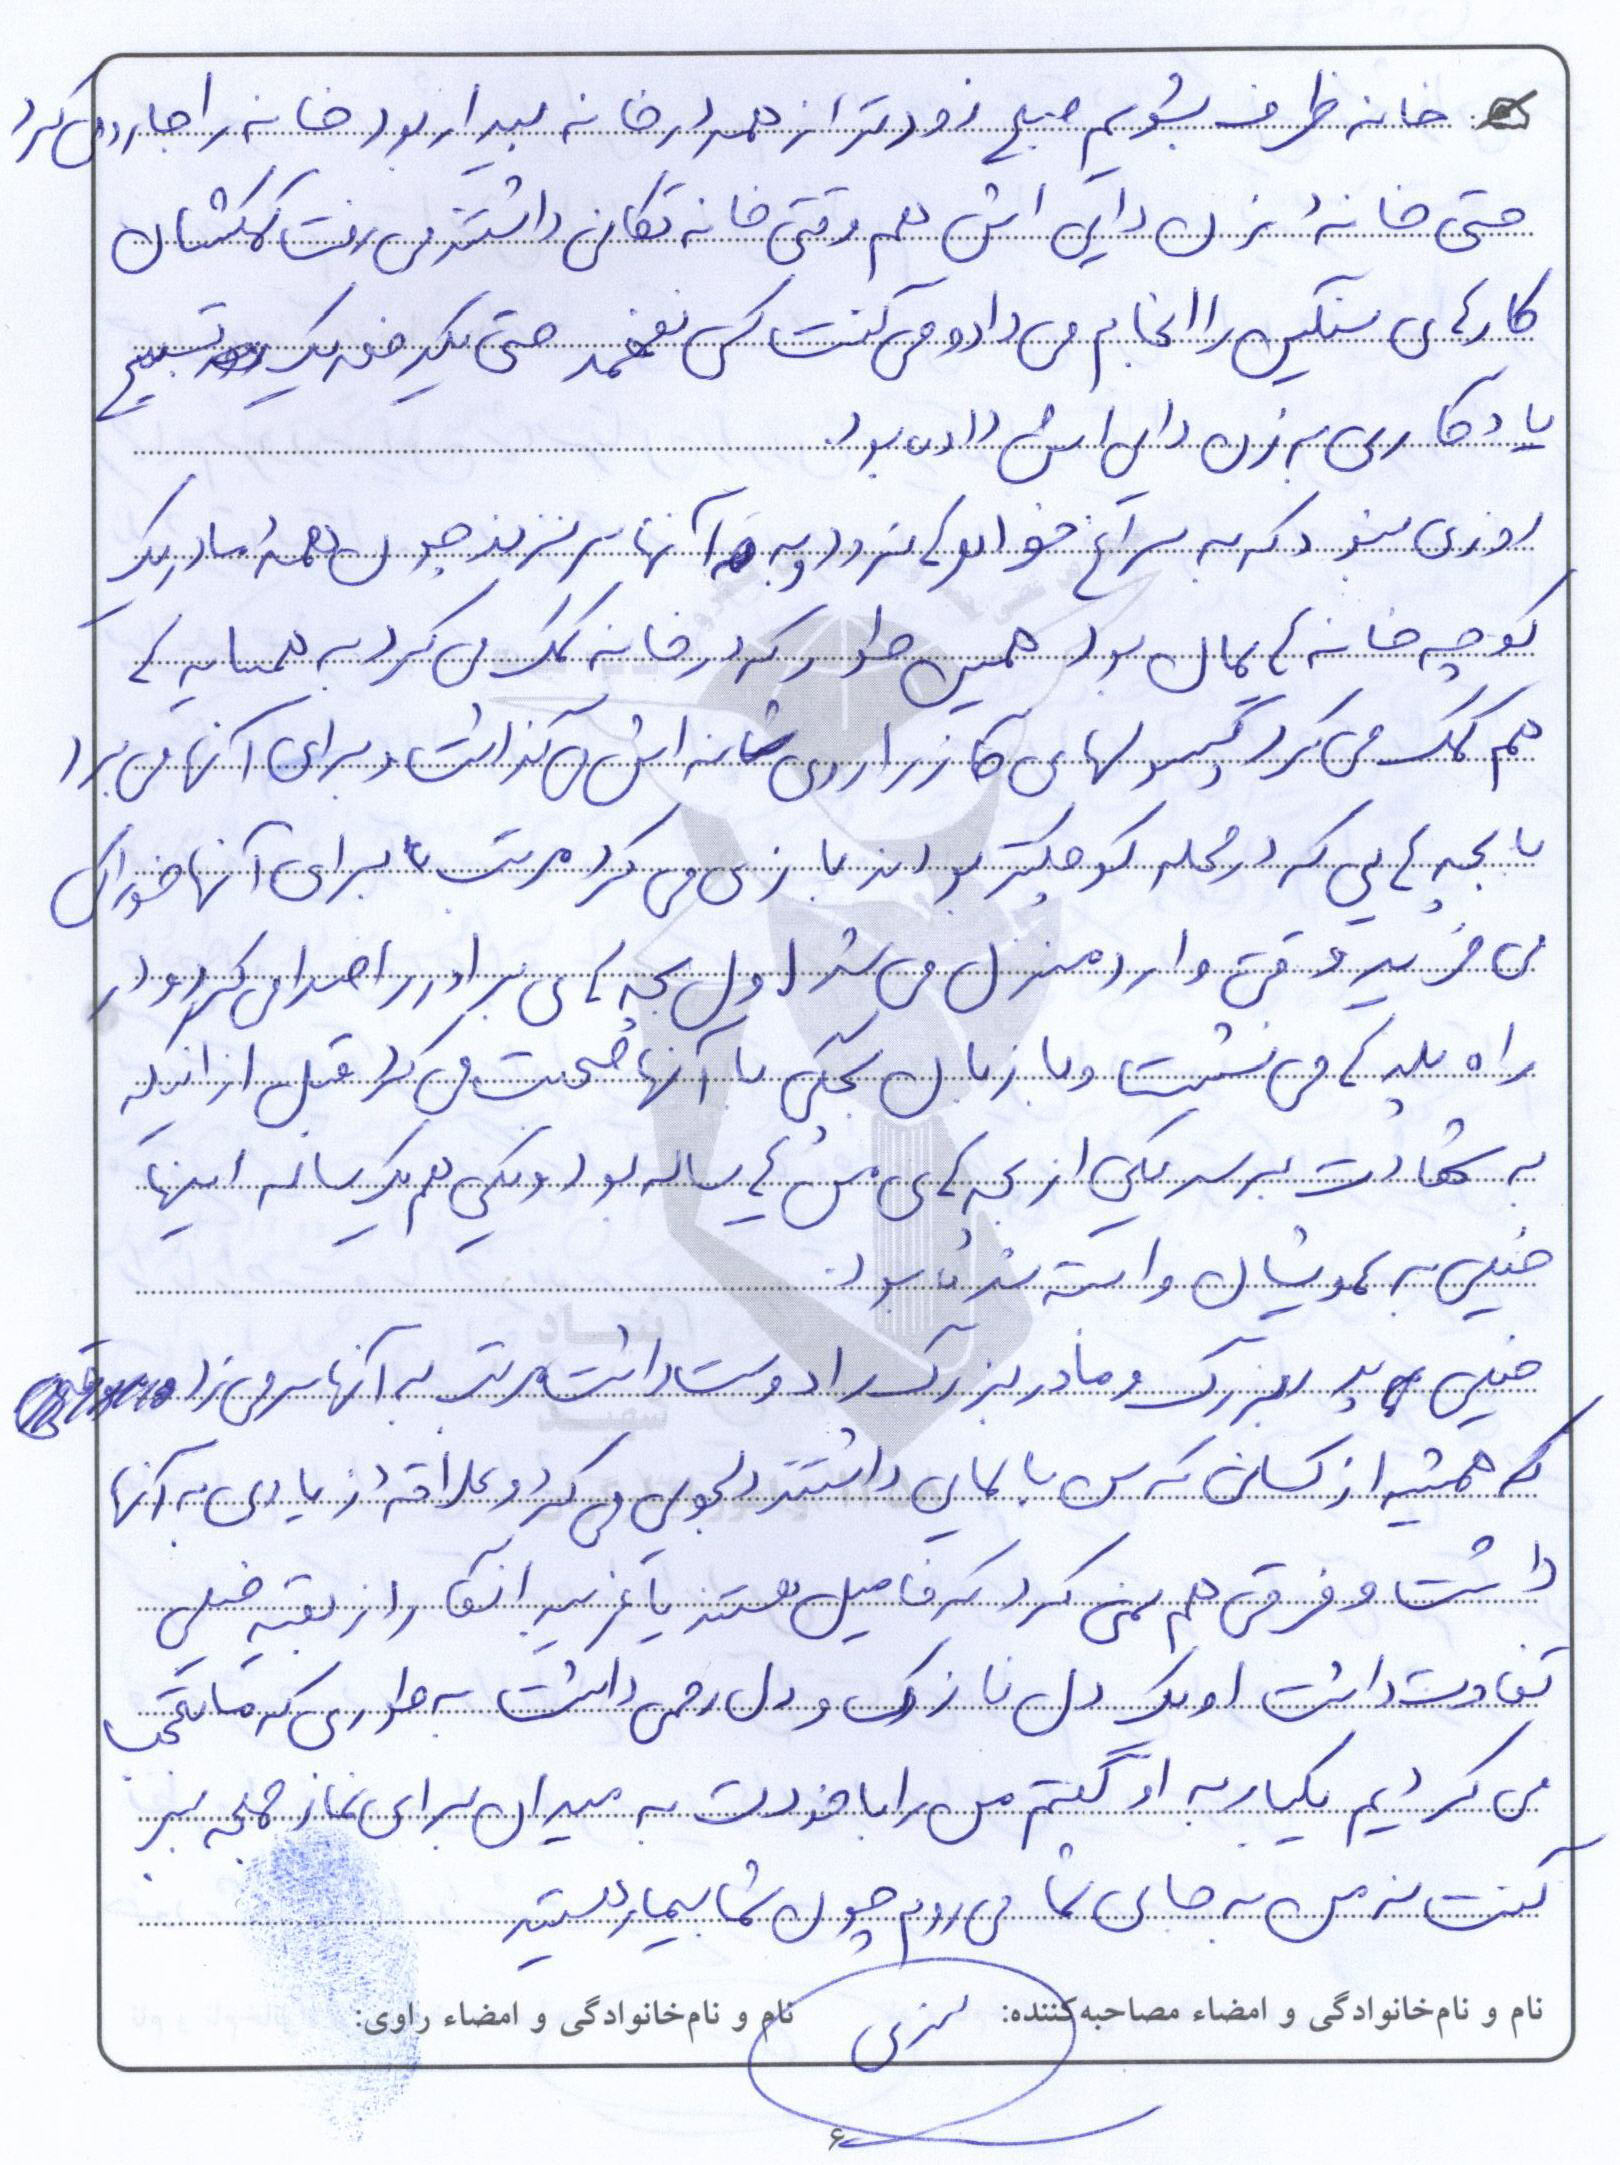 خانه ظرف بشویم صبح زودتر از همه در خانه بیدار بود خانه را جارو می کرد
حتی خانهٔ زن دایی اش هم وقتی خانه تکانی داشتند می رفت کمکشان
کارهای سنگین را انجام می داد و می گفت کسی نفهمد حتی یکدفعه یک تسبیح
یادگاری به زن دایی اش داده بود.
روزی نبود که به سراغ خواهرها نرود و به آنها سر نزند چون همهٔ ما در یک
کوچه خانه هایمان بود همین طور که در خانه کمک می کرد به همسایه ها
هم کمک می کرد کپسولهای گاز را روی شانه اش می گذاشت و برای آنها می برد
با بچه هایی که در محله کوچکتر بودند بازی می کرد مرتب برای آنها خوراکی
می خرید وقتی وارد منزل می شد اول بچه های برادر را صدا می کرد و در
راه پله ها می نشست و با زبان بچگی با آنها صحبت می کرد قبل از اینکه
به شهادت برسد یکی از بچه های من ساله بود و یکی هم یک ساله اینها
خیلی به عمویشان وابسته شده بود.
خیلی پدربزرگ و مادربزرگ را دوست داشت مرتب به آنها سر می زد
که همیشه از کسانی که سن بالایی داشتند دلجویی می کرد و علاقهٔ زیادی به آنها
داشت و فرقی هم نمی کرد که فامیل هستند یا غریبه آنقدر از بقیه خیلی
تفاوت داشت او یک دل نازک و دل رحمی داشت به طوری که ما تعجب
می کردیم یکبار به او گفتم من را با خودت به میدان برای نماز جمعه ببر
گفت نه من به جای شما می روم چون شما بیمار هستید
نام و نام‌خانوادگی و امضاء مصاحبه‌کننده: نام و نام‌خانوادگی و امضاء راوی:
۶